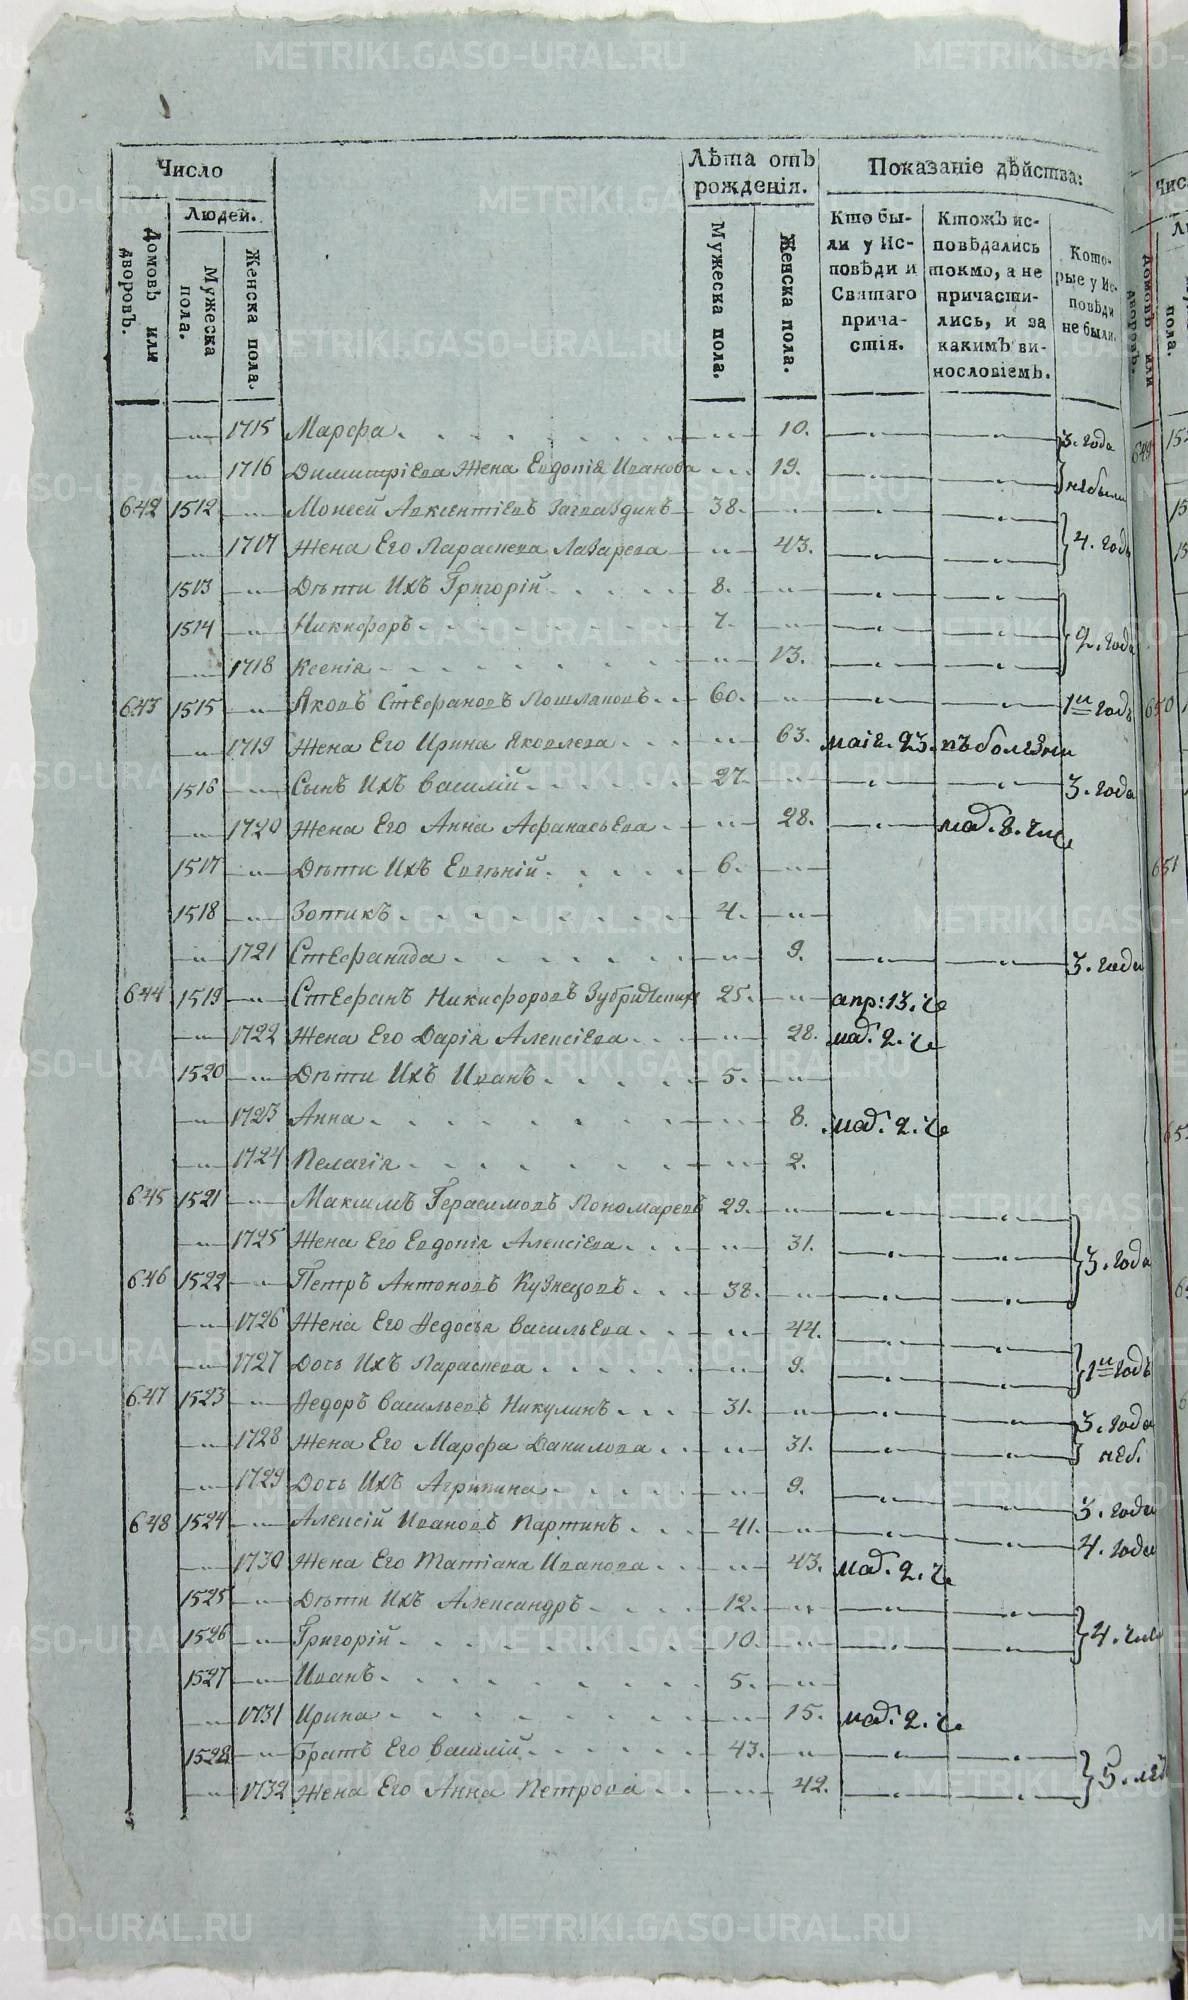 Число
Людей.
Домовъ или дворовъ.
Мужеска пола.
Женска пола.
Лѣта отъ рожденія.
Мужеска пола.
Женска пола.
Показаніе дѣйства:
Кто были у Исповѣди и Святаго причастія.
Ктожъ исповѣдались токмо, а не причастились, и за какимъ винословіемъ.
Которые у Исповѣди не были.
1715 Марфа 10. 3. года
1716 Димитріева Жена Евдокія Иванова 19. не были
642 1512 Моисей Авксентіевъ Загваздинъ 38.
1717 Жена Его Параскева Лазарева 43. 4. года
1513 Дѣти Ихъ Григорій 8.
1514 Никифоръ 7. 2. года
1718 Ксенія 13.
643 1515 Яковъ Стефановъ 60. 1й годъ
1719 Жена Его Ирина Яковлева 63. маія. 23. въ болезни
1516 Сынъ Ихъ Василій 27. 3. года
1720 Жена Его Анна Афанасьева 28.
1517 Дѣти Ихъ Евгѣній 6.
1518 Зотикъ 4.
1721 Стефанида 9. 3. года
644 1519 Стефанъ Никифоровъ 25. апр: 13. че
1722 Жена Его Дарія Алексіева 28. 2. че
1520 Дѣти Ихъ Иванъ 5.
1723 Анна 8. 2. че
1724 Пелагія 2.
645 1521 Максимъ Герасимовъ Пономаревъ 29.
1725 Жена Его Евдокія Алексіева 31. 3. года
646 1522 Петръ Антоновъ Кузнецовъ 38.
1726 Жена Его Ѳедосья Васильева 44.
1727 Дочь Ихъ Параскева 9. 1й годъ
647 1523 Ѳедоръ Васильевъ Никулинъ 31. 3. года
1728 Жена Его Марфа Данилова 31. неб.
1729 Дочь Ихъ Агрипина 9. 3. года
648 1524 Алексій Ивановъ Картинъ 41. 4. года
1730 Жена Его Татіана Иванова 43. 2. че
1525 Дѣти Ихъ Александръ 12.
1526 Григорій 10. 4.
1527 Иванъ 5.
1731 Ирина 15. 2. че
1528 Братъ Его Василій 43.
1732 Жена Его Анна Петрова 42. 5.
METRIKI.GASO-URAL.RU